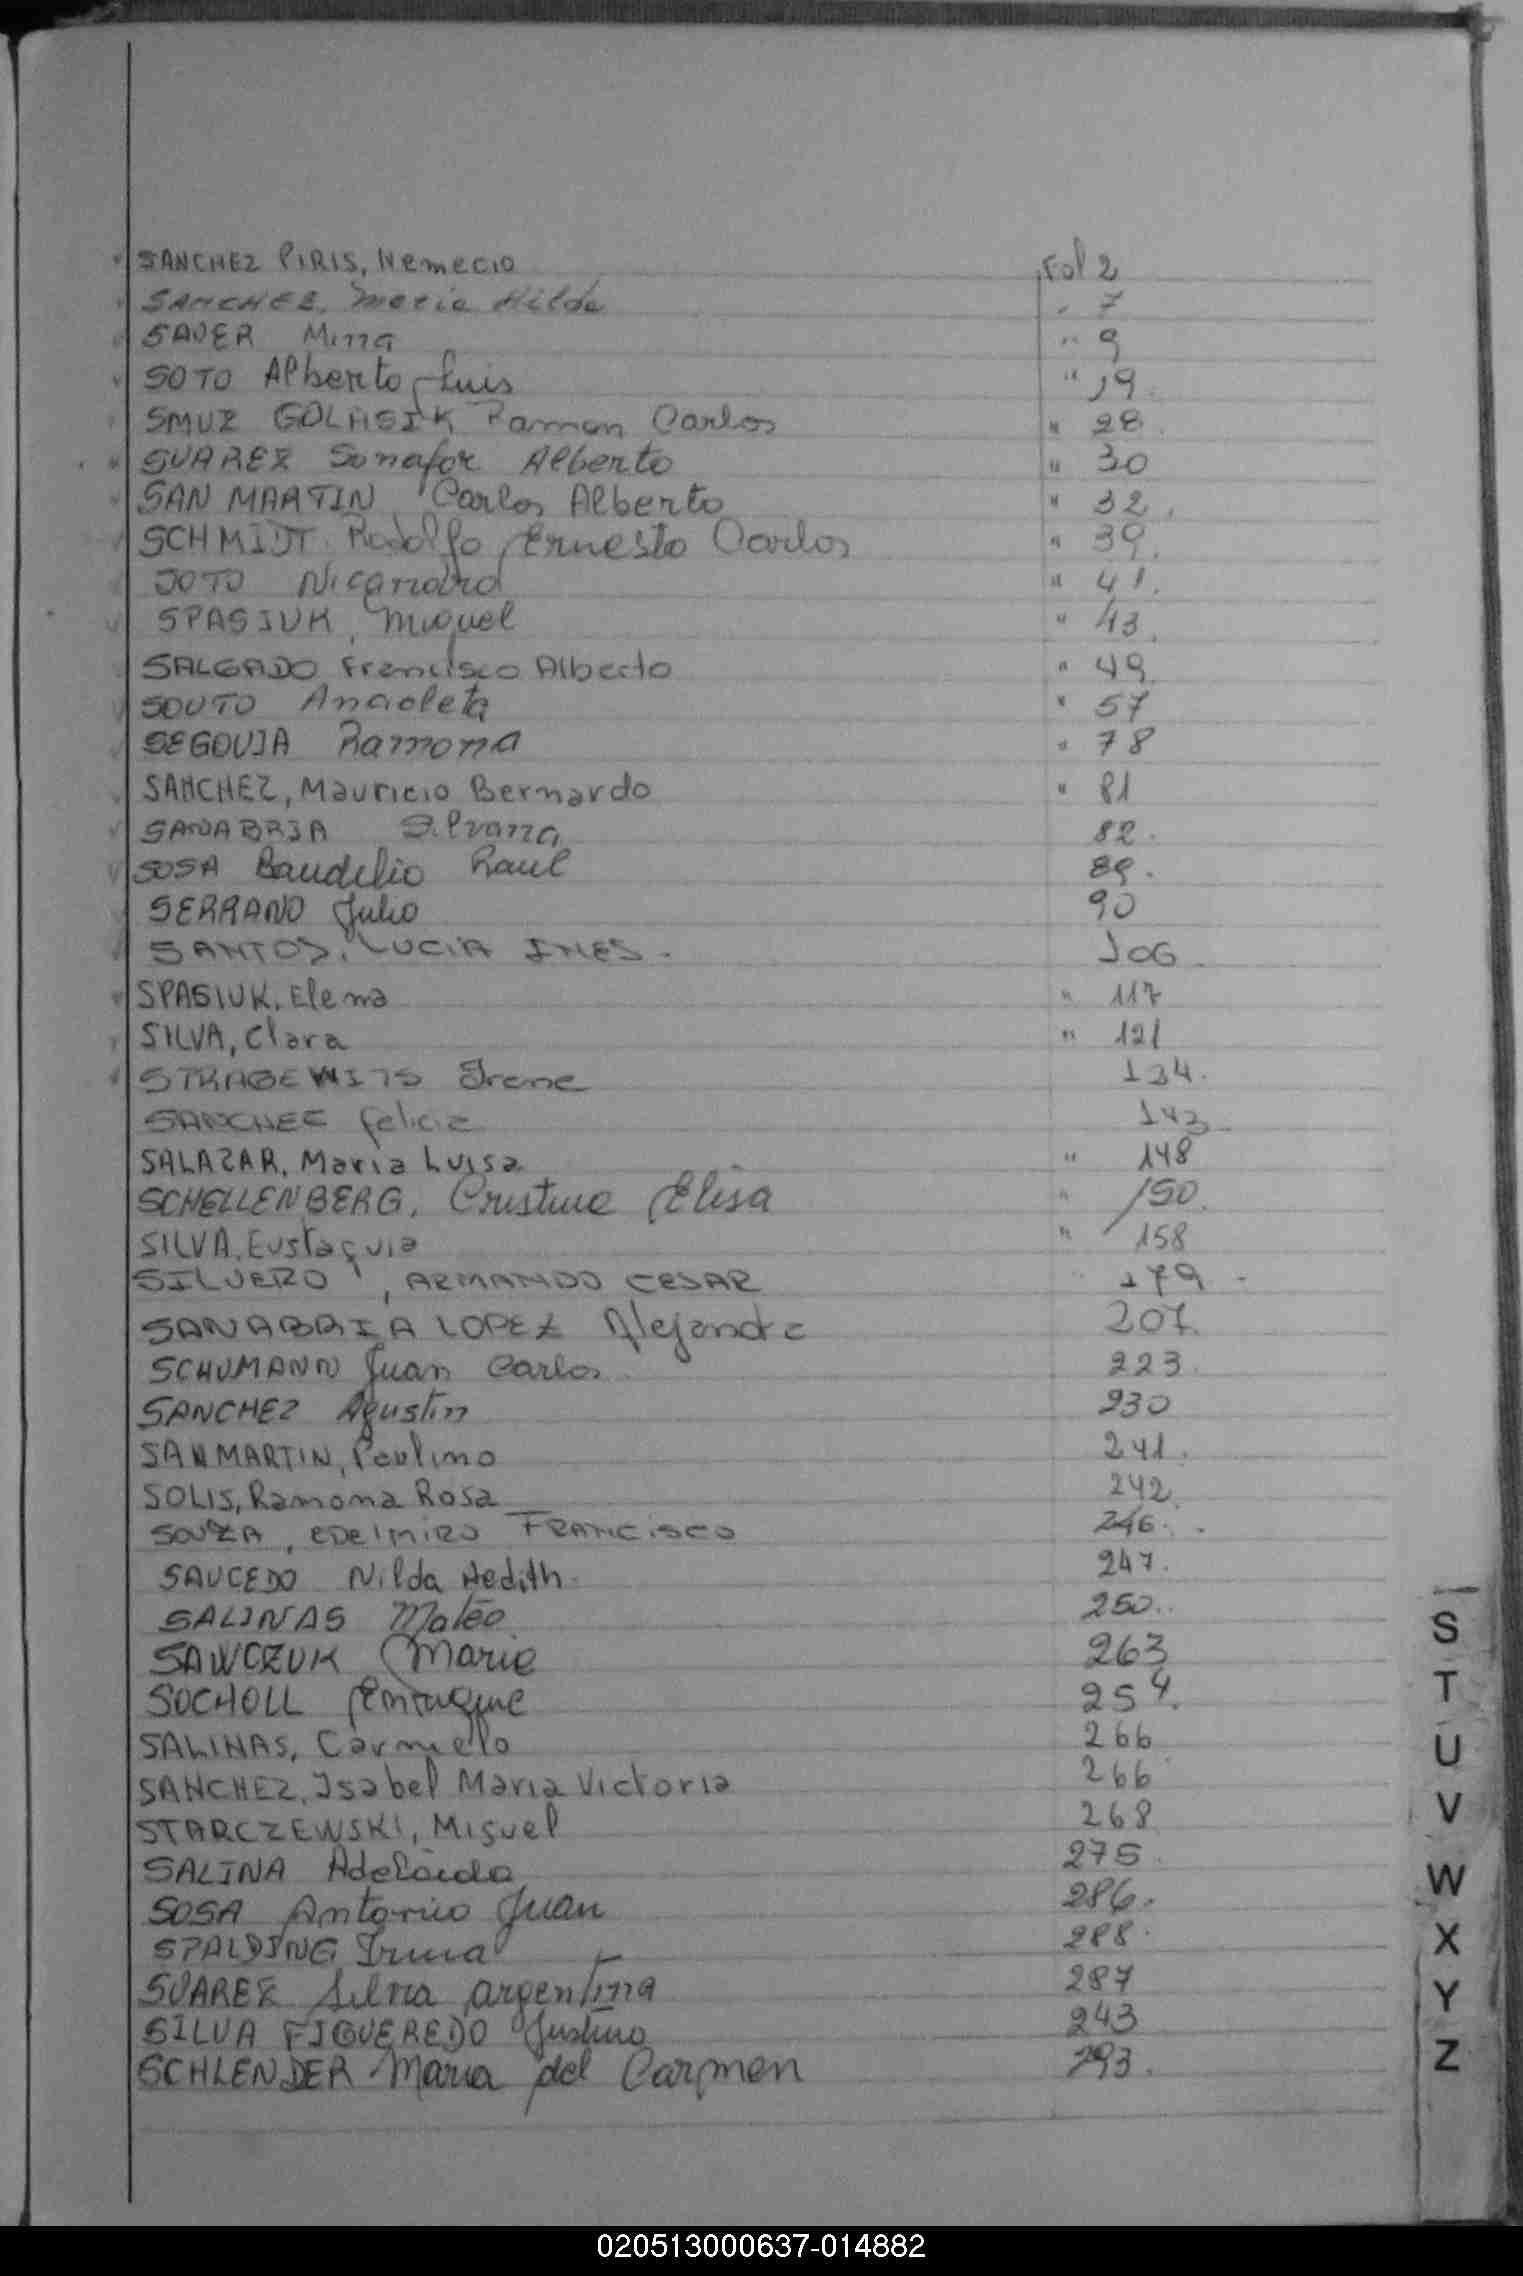 SANCHEZ PIRIS, Nemecio Fol 2
SANCHEZ, Maria Hilda " 7
SAUER Mirra " 9
SOTO Alberto Luis " 19
SMUZ GOLASIK Ramon Carlos " 28
SUAREZ Alberto " 30
SAN MARTIN Carlos Alberto " 32
SCHMIDT Rodolfo Ernesto Carlos " 39
SOTO Nicandro " 41
SPASIUK, Miguel " 43
SALGADO Francisco Alberto " 49
SOUTO Anacleta " 57
SEGOVIA Ramona " 78
SANCHEZ, Mauricio Bernardo " 81
SANABRIA Silvana 82
SOSA Baudelio Raul 89
SERRANO Julio 90
SANTOS, LUCIA INES 106
SPASIUK, Elena " 117
SILVA, Clara " 121
Irene 134
SANCHEZ Felicia 143
SALAZAR, Maria Luisa " 148
SCHELLENBERG, Cristina Elisa " 150
SILVA, Eustaquia " 158
SILVERO, ARMANDO CESAR 179
SANABRIA LOPEZ Alejandra 207
SCHUMANN Juan Carlos 223
SANCHEZ Agustin 230
SANMARTIN, Paulino 241
SOLIS, Ramona Rosa 242
SOUZA, EDELMIRO FRANCISCO 246
SAUCEDO Nilda Hedith 247
SALINAS Mateo 250
SAWCZUK Maria 263
SOCHOLL Enrique 254
SALINAS, Carmelo 266
SANCHEZ, Isabel Maria Victoria 266
STARCZEWSKI, Miguel 268
SALINA Adelaida 275
SOSA Antonio Juan 286
SPALDING Irma 288
SUAREZ Silvia Argentina 287
SILVA FIGUEREDO Justino 243
SCHLENDER Maria del Carmen 293
S
T
U
V
W
X
Y
Z
020513000637-014882